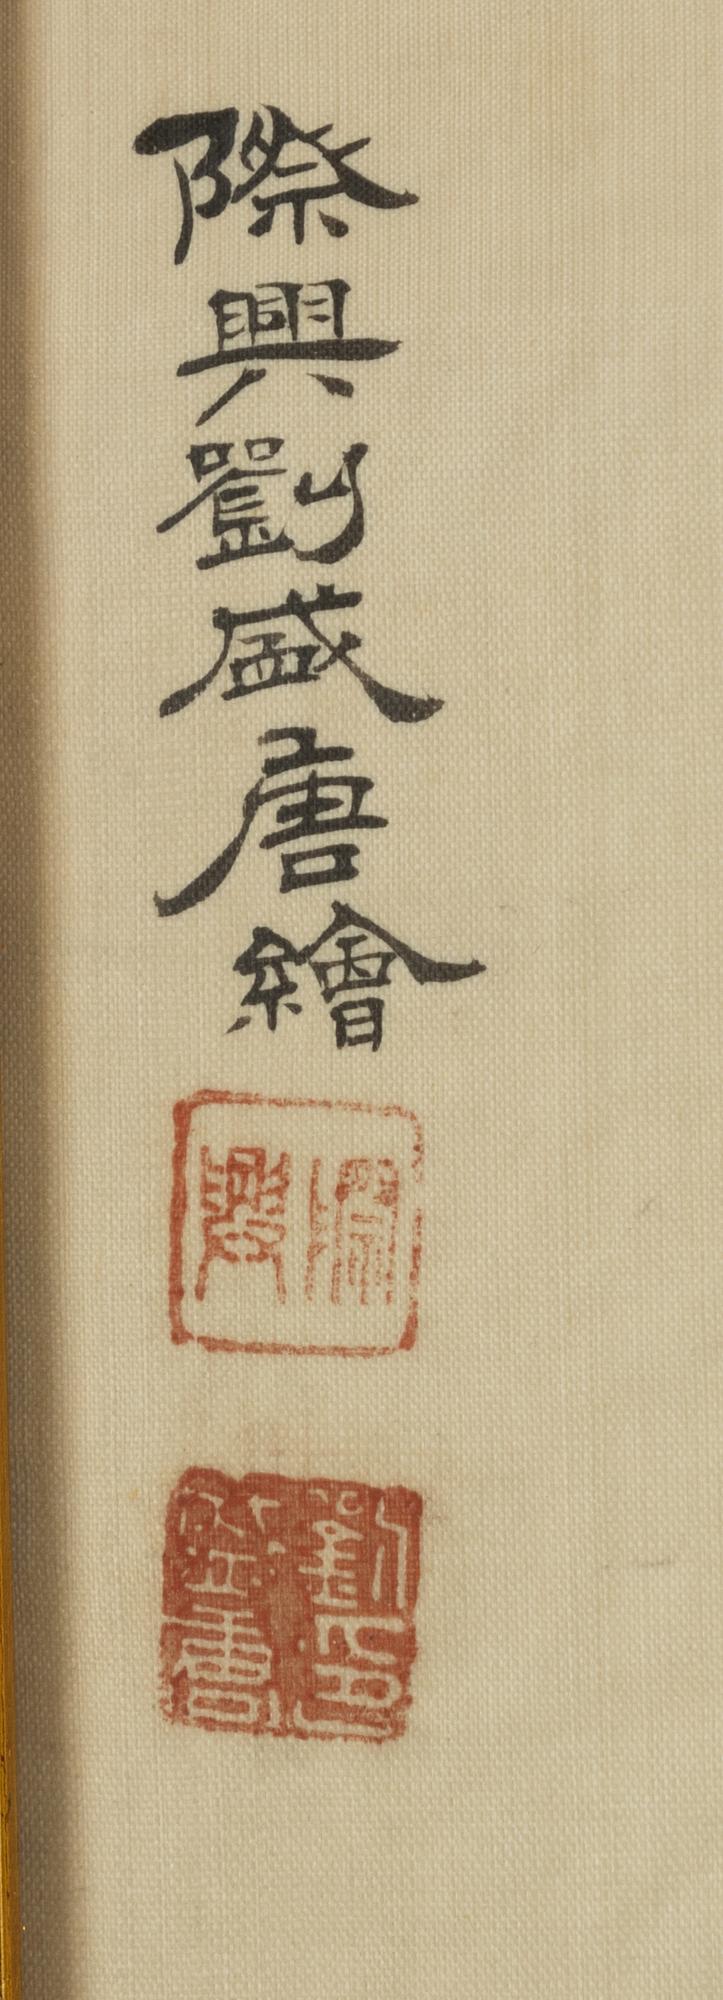 際興劉盛唐繪
際興
劉盛唐印